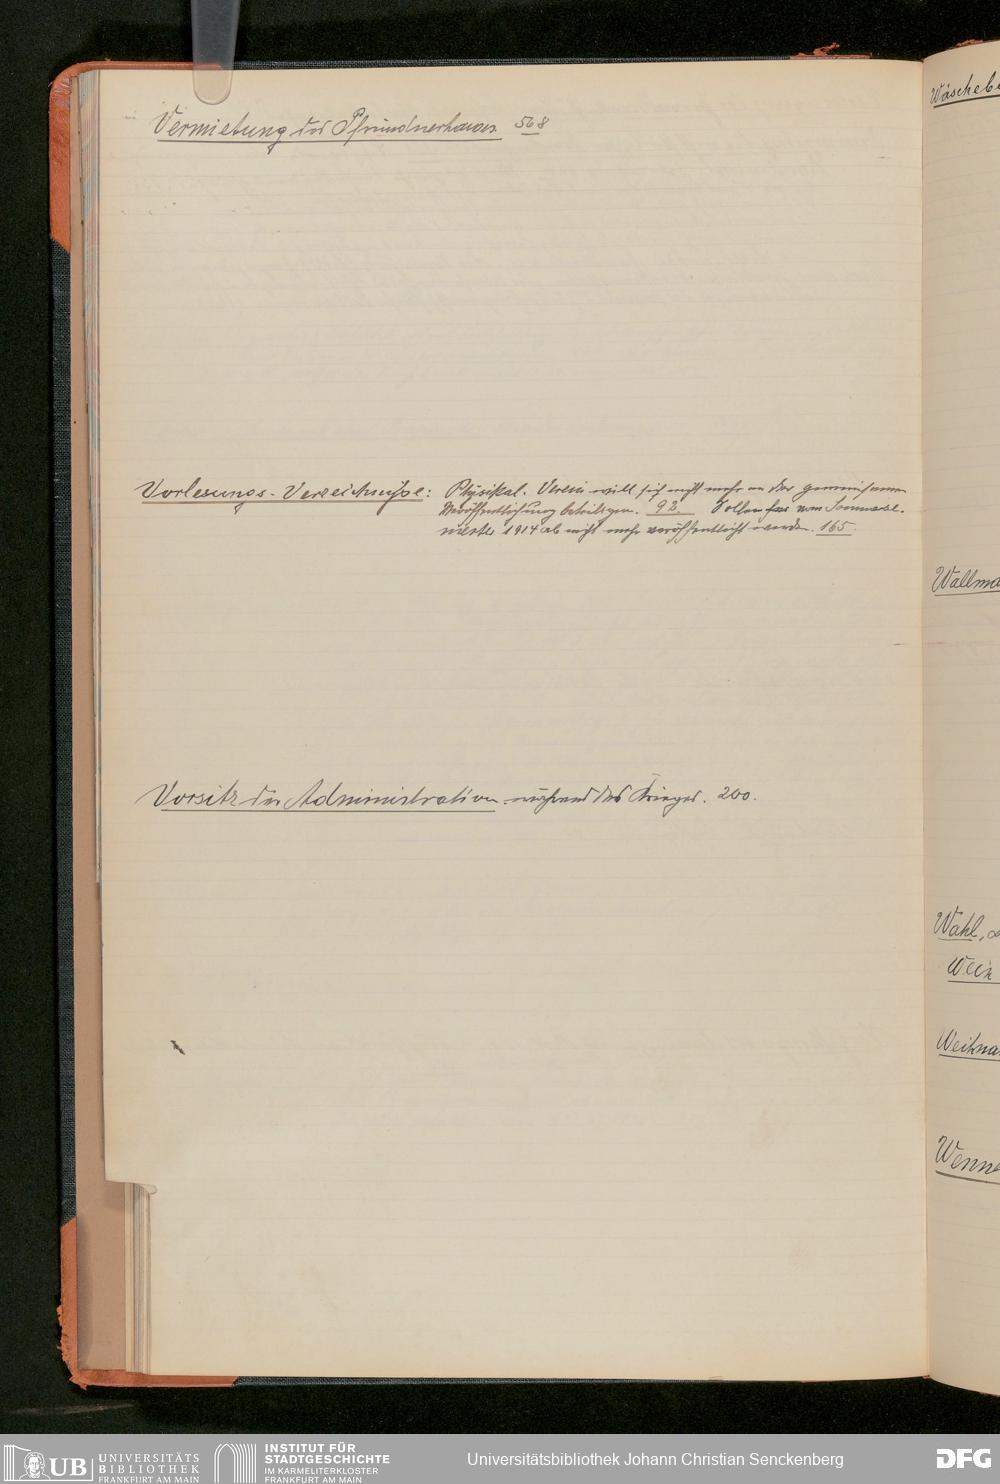 Vermietung des Pfründnerhauses 568
Vorlesungs-Verzeichnisse: Physikal. Verein will sich nicht mehr an der gemeinsamen
Veröffentlichung beteiligen. 92. Sollen vom Sommerse-
mester 1914 ab nicht mehr veröffentlicht werden. 165
Vorsitz der Administration während des Krieges. 200.
Wahl,
UB UNIVERSITÄTS
BIBLIOTHEK
FRANKFURT AM MAIN
INSTITUT FÜR
STADTGESCHICHTE
IM KARMELITERKLOSTER
FRANKFURT AM MAIN
Universitätsbibliothek Johann Christian Senckenberg
DFG